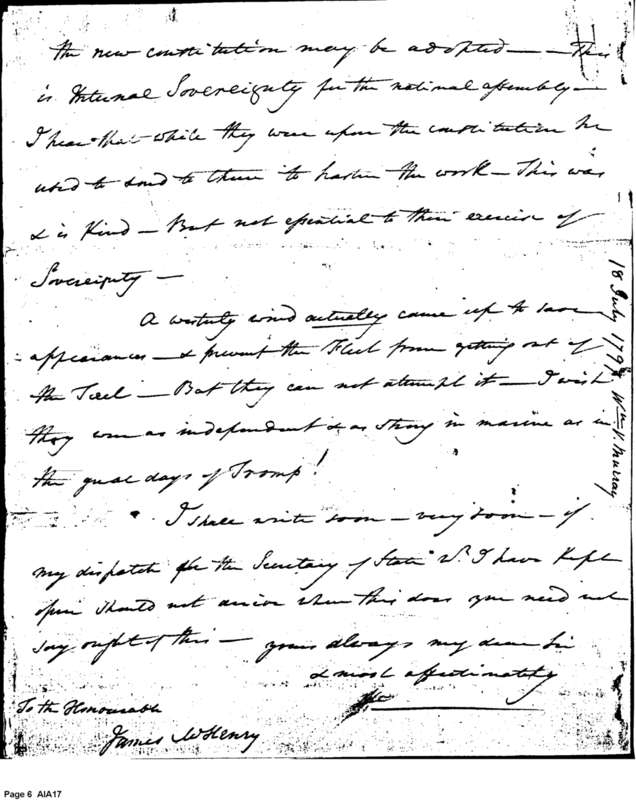 the new constitution may be adopted — — This
is Internal Sovereignty for the national assembly —
I hear that while they were upon the constitution he
used to send to them to hasten the work — This was
& is Kind — But not essential to their exercise of
Sovereignty —
A westerly wind actually came up to save
appearances — & prevent the Fleet from getting out of
the Texel — But they can not attempt it — I wish
they were as independent & as strong in marine as in
the great days of Tromp!
I shall write soon — very soon — if
my dispatch for the Secretary of State wh. I have kept
open should not arrive when this does you need not
say ought of this — yours always my dear Sir
& most affectionately
To the Honourable
James McHenry
18 July 1798 Wm. V. Murray
Page 6 AIA17